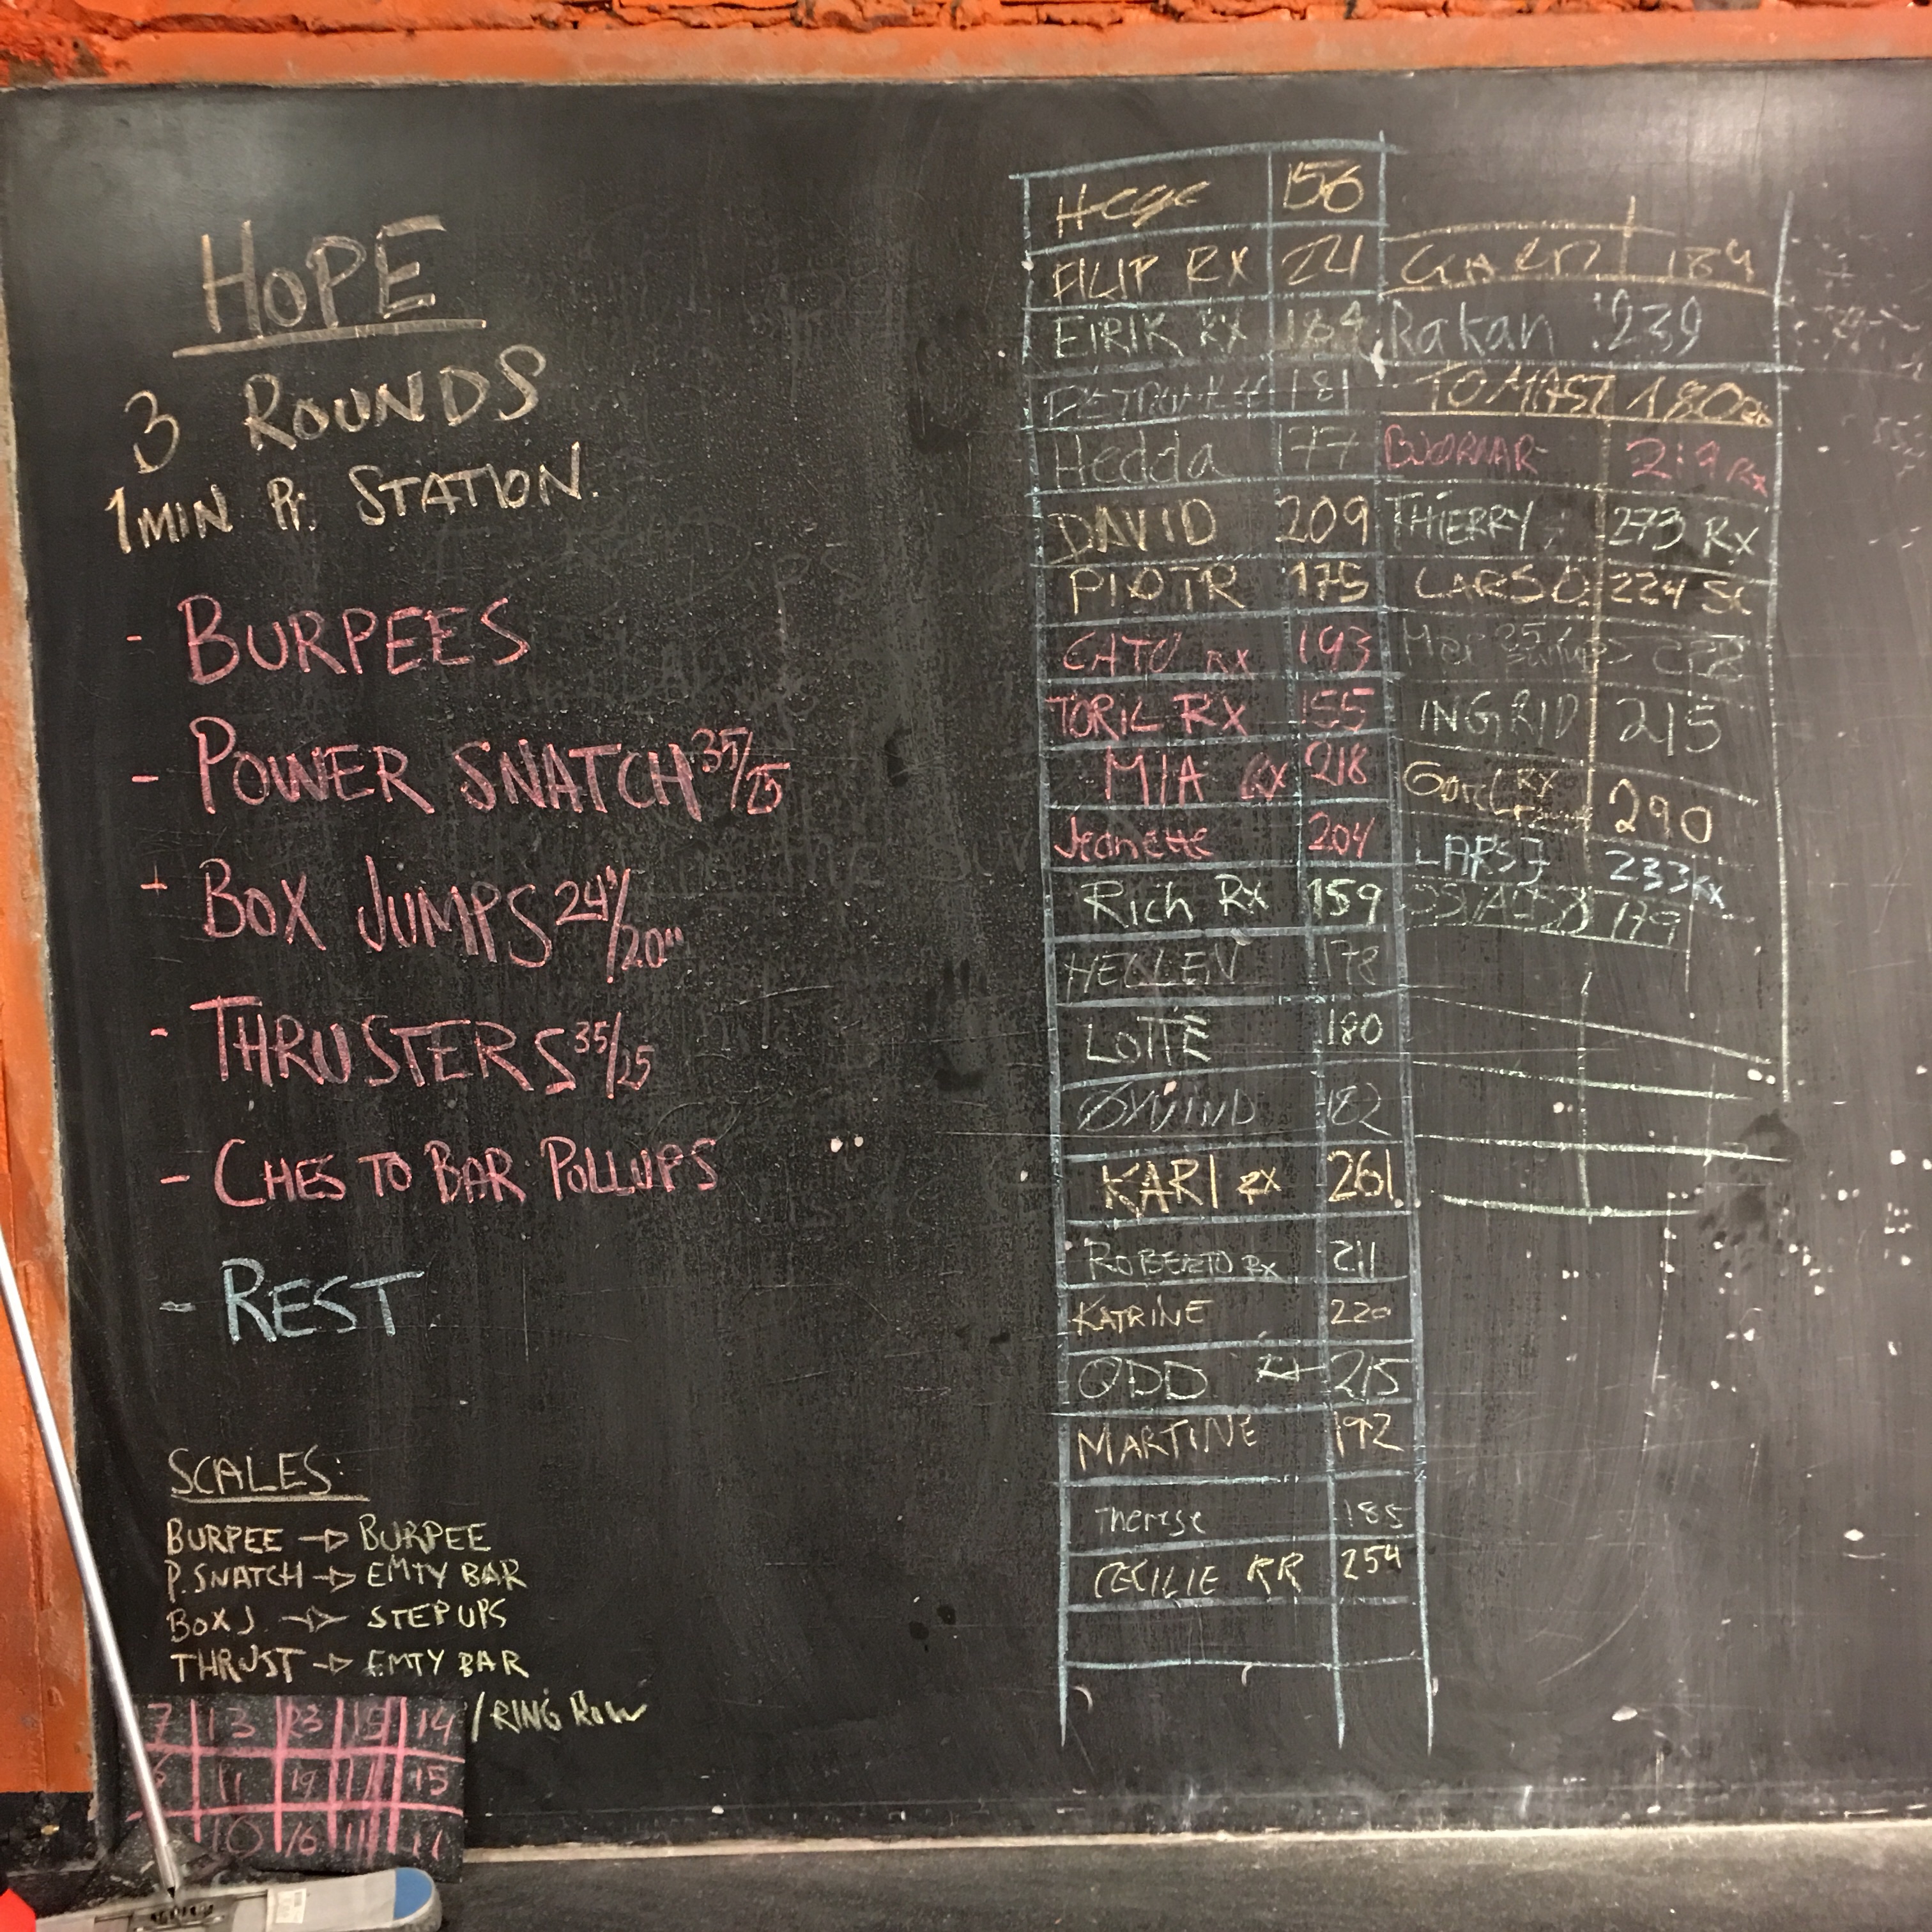 HOPE
3 ROUNDS
1MIN Pr. STATION.
- BURPEES
- POWER SNATCH 35/25
- BOX JUMPS 24"/20"
- THRUSTERS 35/25
- CHES TO BAR POLLUPS
- REST
SCALES:
BURPEE → BURPEE
P. SNATCH → EMTY BAR
BOX J. → STEP UPS
THRUST → EMTY BAR
/RING ROW
7 13 23 15 14
11 19 11 15
10 16 11 11
Hege 156
FILIP RX 221
EIRIK RX 184
181
Hedda 177
DAVID 209
PIOTR 175
CATO RX 193
TORIL RX 155
MIA RX 218
Jeanette 204
Rich Rx 159
HELLEN 178
LOTTE 180
ØYVIND 182
KARI RX 261
ROBERTO RX 211
KATRINE 220
ODD RX 215
MARTINE 192
Therese 185
CECILIE RR 254
GARD 184
Rakan 239
TOMAS 180 RX
BJORNAR RX
THIERRY 273 RX
LARS Ø 224 SC
INGRID 215
RX 290
LARS J 233 RX
179